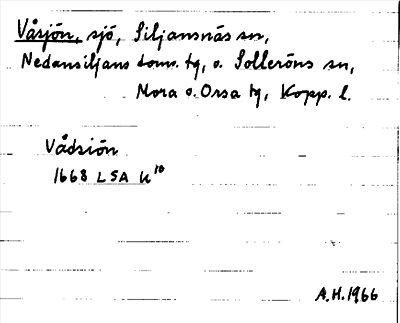 Våsjön, sjö, Siljansnäs sn,
Nedansiljans doms. tg, o. Solleröns sn,
Mora o. Orsa tg, Kopp. l.
Vådsiön
1668 LSA U¹⁰
A.H. 1966